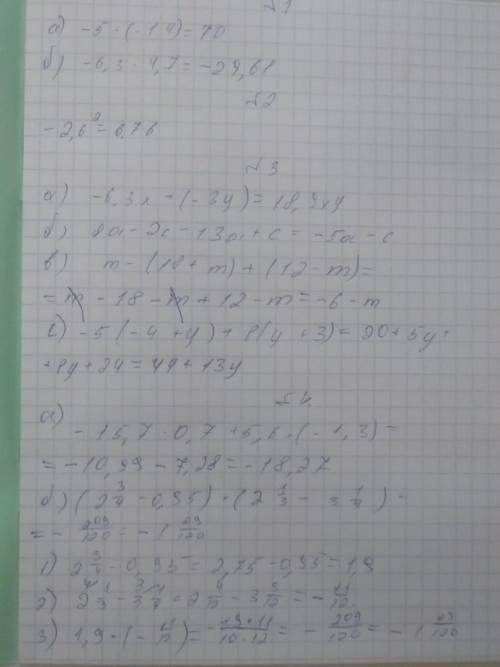 №1
а) -5 · (-14) = 70
б) -6,3 · 4,7 = -29,61
№2
-2,6² = 6,76
№3
а) -6,3x · (-3y) = 18,9xy
б) 8a - 2c - 13a + c = -5a - c
в) m - (18 + m) + (12 - m) =
= m - 18 - m + 12 - m = -6 - m
г) -5 (-4 + y) + 8(y + 3) = 20 + 5y +
+ 8y + 24 = 44 + 13y
№4
а)
-15,7 · 0,7 + 5,6 · (-1,3) =
= -10,99 - 7,28 = -18,27
б) (2 3/4 - 0,85) · (2 1/3 - 3 1/4) =
= - 209/120 = -1 89/120
1) 2 3/4 - 0,85 = 2,75 - 0,85 = 1,9
2) 2 1/3 - 3 1/4 = 2 4/12 - 3 3/12 = - 11/12
3) 1,9 · (- 11/12) = - 19·11/10·12 = - 209/120 = -1 89/120